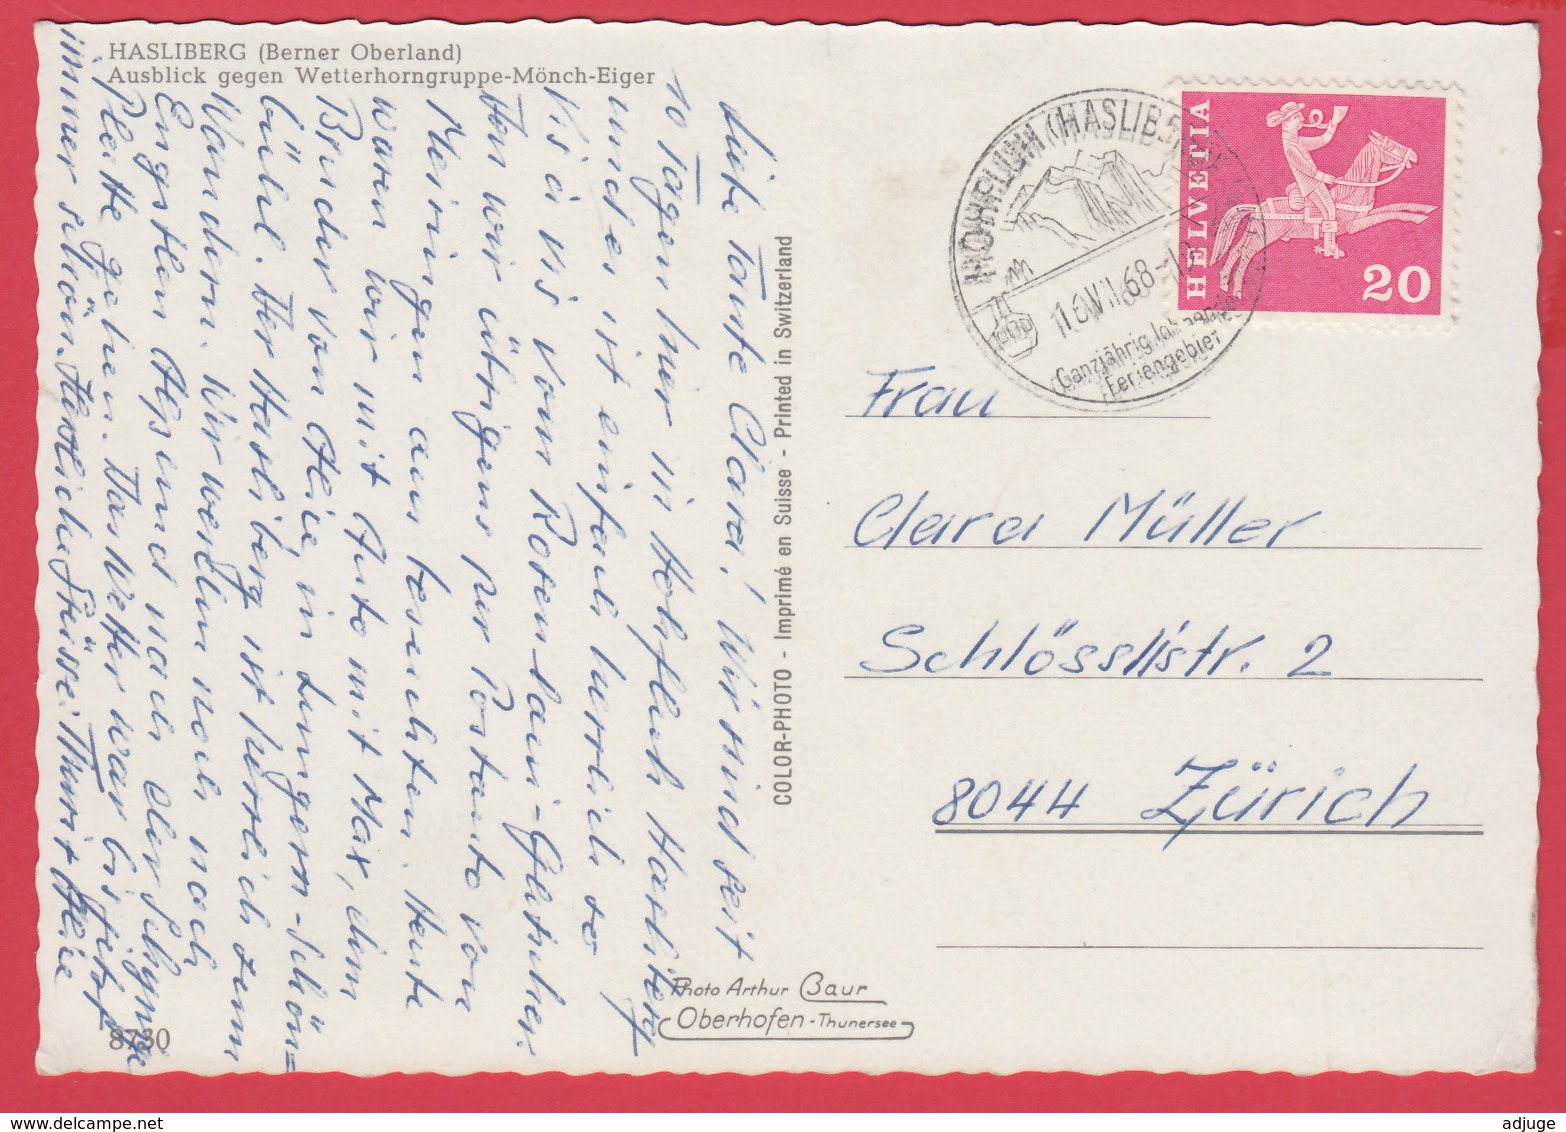 HASLIBERG (Berner Oberland)
Ausblick gegen Wetterhorngruppe-Mönch-Eiger
Liebe Tante Clara! Wir sind seit
10 Tagen hier in Hohfluh Hasliberg
und es ist einfach herrlich so
Vis à vis vom Rosenlaui-Gletscher.
Den wir übrigens per Postauto von
Meiringen aus besuchten. Heute
waren wir mit Auto mit Max, dem
Bruder von Heie in Lungern-Schön=
bühl. Der Hasliberg ist herrlich zum
Wandern. Wir werden noch nach
Engstlen Alp und nach der Schynige
Platte gehen. Das Wetter war bis jetzt
immer schön. Herzliche Grüsse: Thury + Heie
8730
COLOR-PHOTO - Imprimé en Suisse - Printed in Switzerland
Photo Arthur Baur
Oberhofen - Thunersee
HOHFLUH (HASLIBERG)
16.VII.68-12
Ganzjährig
Feriengebiet
HELVETIA
20
Frau
Clara Müller
Schlösslistr. 2
8044 Zürich
https://www.delcampe.net
adjuge